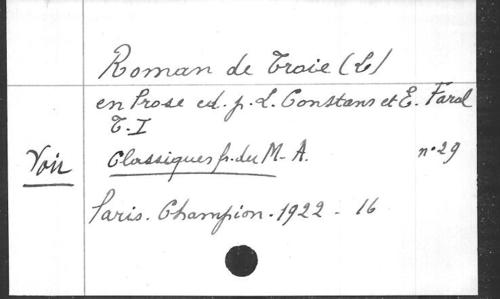 Roman de Troie (Le)
en Prose ed. p. L. Constans et E. Faral
T. I
Voir Classiques fr. du M-A. n° 29
Paris. Champion. 1922 - 16